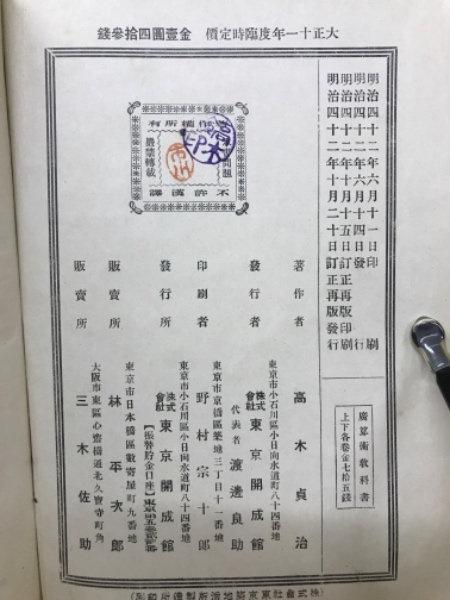 大正十一年度臨時定價 金壹圓四拾參錢
明治四十二年六月十一日印刷
明治四十二年六月十四日發行
明治四十二年十月十五日訂正再版印刷
明治四十二年十月二十日訂正再版發行
廣算術教科書
上下各卷金七拾五錢
著作權所有
嚴禁轉載
不許漢譯
高木
市川
著作者 高木貞治
東京市小石川區小日向水道町八十四番地
發行者 株式會社 東京開成館
代表者 渡邊良助
東京市京橋區築地三丁目十一番地
印刷者 野村宗十郎
東京市小石川區小日向水道町八十四番地
發行所 株式會社 東京開成館
東京市日本橋區數寄屋町九番地
販賣所 林平次郎
大阪市東區心齋橋通北久寶寺町角
販賣所 三木佐助